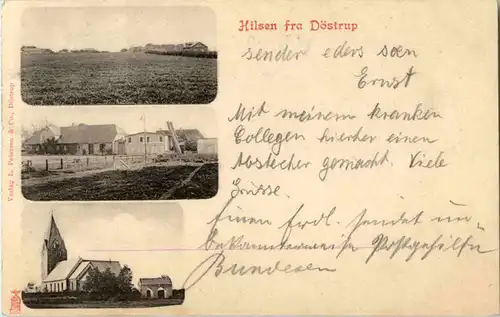 Hilsen fra Döstrup
sender eders søn
Ernst
Mit meinem kranken
Collegen hierher einen
Abstecher gemacht. Viele
Grüsse.
Einen frdl. sendet un-
bekannterweise Postgehilfe
Bundesen
Verlag L. Petersen & Co., Döstrup